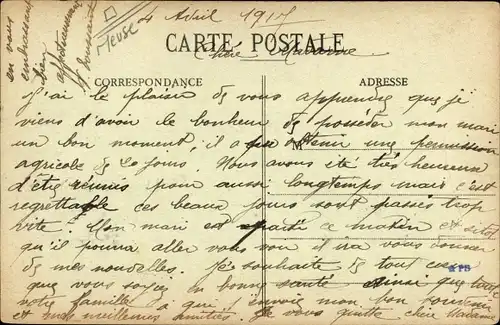 4 Avril 1917
Meuse
CARTE POSTALE
Chère Madame
CORRESPONDANCE
ADRESSE
J'ai le plaisir de vous apprendre que je
viens d'avoir le bonheur de posséder mon mari
un bon moment, il a pu obtenir une permission
agricole de 20 jours. Nous avons été très heureux
d'être réunis pour aussi longtemps mais c'est
regrettable ces beaux jours sont passés trop
vite! Mon mari est parti ce matin et sitôt
qu'il pourra aller vous voir il ira vous donner
de mes nouvelles. Je souhaite de tout cœur
que vous soyez en bonne santé ainsi que toute
votre famille à qui j'envoie mon bon souvenir
et mes meilleures amitiés. Je vous quitte chère Madame
en vous
embrassant
bien
affectueusement